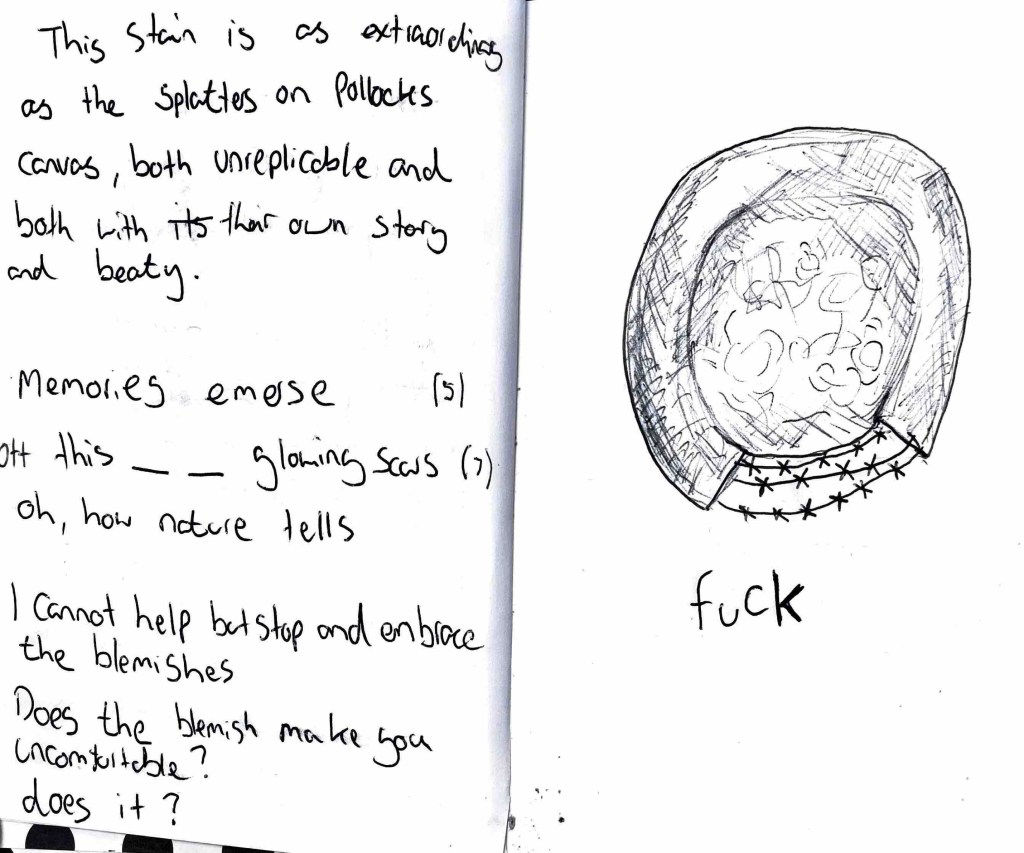 This stain is as extraordinary
as the splatters on Pollocks
canvas, both unreplicable and
both with its their own story
and beaty.
Memories emerse (5)
Off this _ _ glowing scars (7)
oh, how nature tells
I cannot help but stop and embrace
the blemishes
Does the blemish make you
uncomfortable?
does it?
fuck